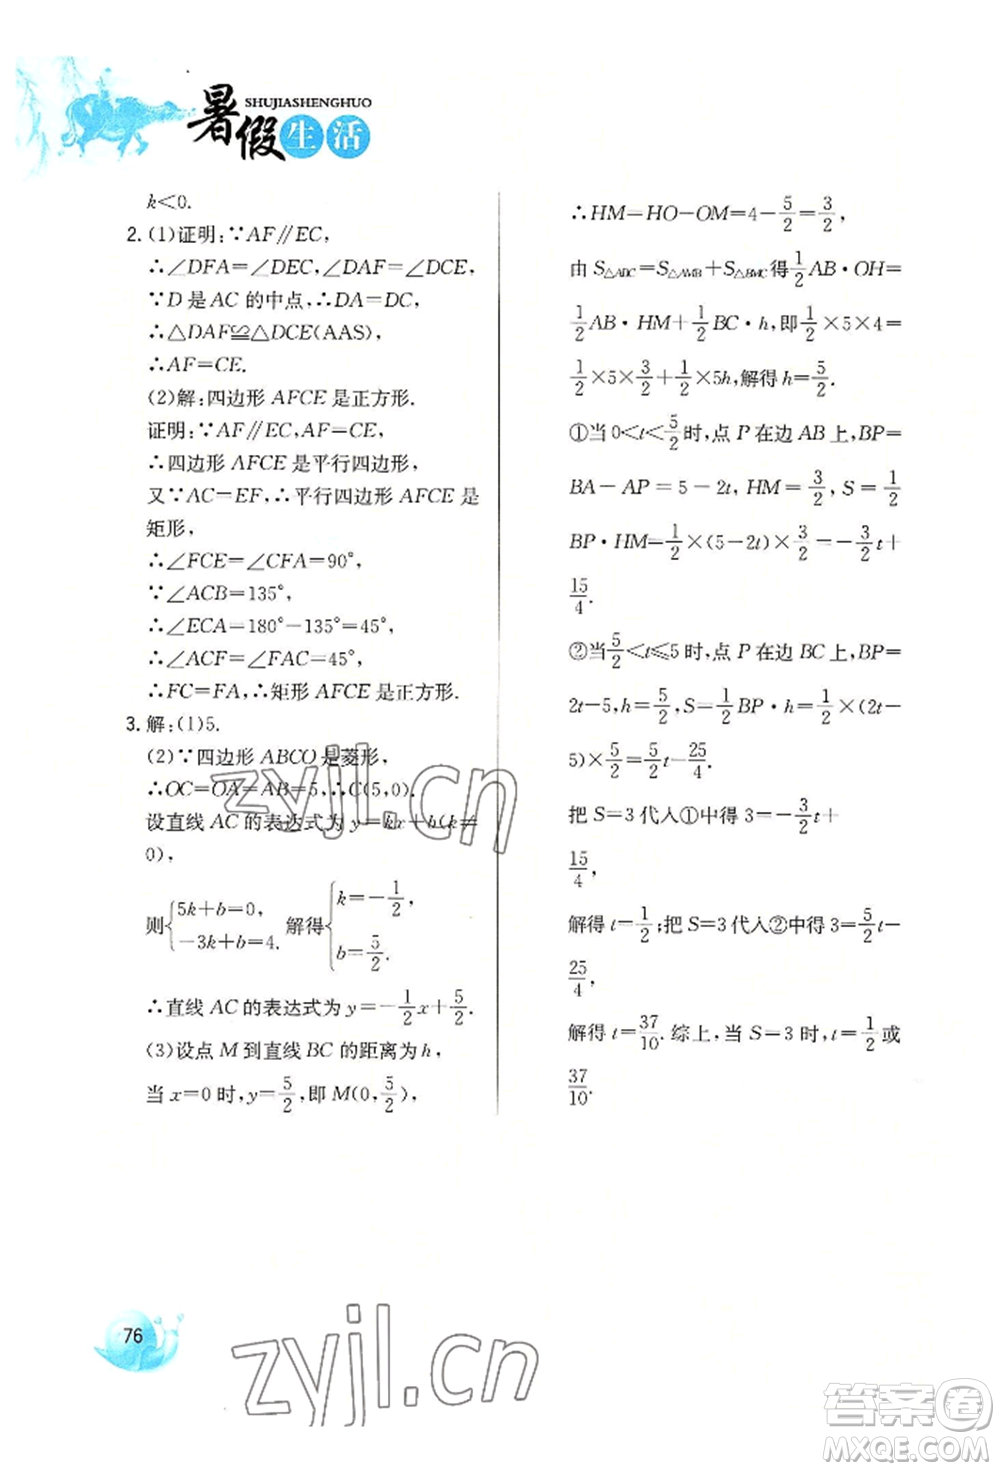 SHUJIASHENGHUO
暑假生活
k<0.
2.(1)证明:∵AF∥EC,
∴∠DFA=∠DEC,∠DAF=∠DCE,
∵D是AC的中点,∴DA=DC,
∴△DAF≌△DCE(AAS),
∴AF=CE.
(2)解:四边形AFCE是正方形.
证明:∵AF∥EC,AF=CE,
∴四边形AFCE是平行四边形,
又∵AC=EF,∴平行四边形AFCE是
矩形,
∴∠FCE=∠CFA=90°,
∵∠ACB=135°,
∴∠ECA=180°-135°=45°,
∴∠ACF=∠FAC=45°,
∴FC=FA,∴矩形AFCE是正方形.
3.解:(1)5.
(2)∵四边形ABCO是菱形,
∴OC=OA=AB=5,∴C(5,0).
设直线AC的表达式为y=kx+b(k≠
0),
则{5k+b=0, -3k+b=4. 解得{k=-1/2, b=5/2.
∴直线AC的表达式为y=-1/2x+5/2.
(3)设点M到直线BC的距离为h,
当x=0时,y=5/2,即M(0,5/2),
∴HM=HO-OM=4-5/2=3/2,
由S△ABC=S△AMB+S△BMC得1/2AB·OH=
1/2AB·HM+1/2BC·h,即1/2×5×4=
1/2×5×3/2+1/2×5h,解得h=5/2.
①当0<t<5/2时,点P在边AB上,BP=
BA-AP=5-2t,HM=3/2,S=1/2
BP·HM=1/2×(5-2t)=-3/2t+
15/4.
②当5/2<t≤5时,点P在边BC上,BP=
2t-5,h=5/2,S=1/2BP·h=1/2×(2t-
5)×5/2=5/2t-25/4.
把S=3代人①中得3=-3/2t+
15/4,
解得t=1/2;把S=3代人②中得3=5/2t-
25/4,
解得t=37/10.综上,当S=3时,t=1/2或
37/10.
zyjl.cn
76
zyjl.cn
答案圈
MXQE.COM